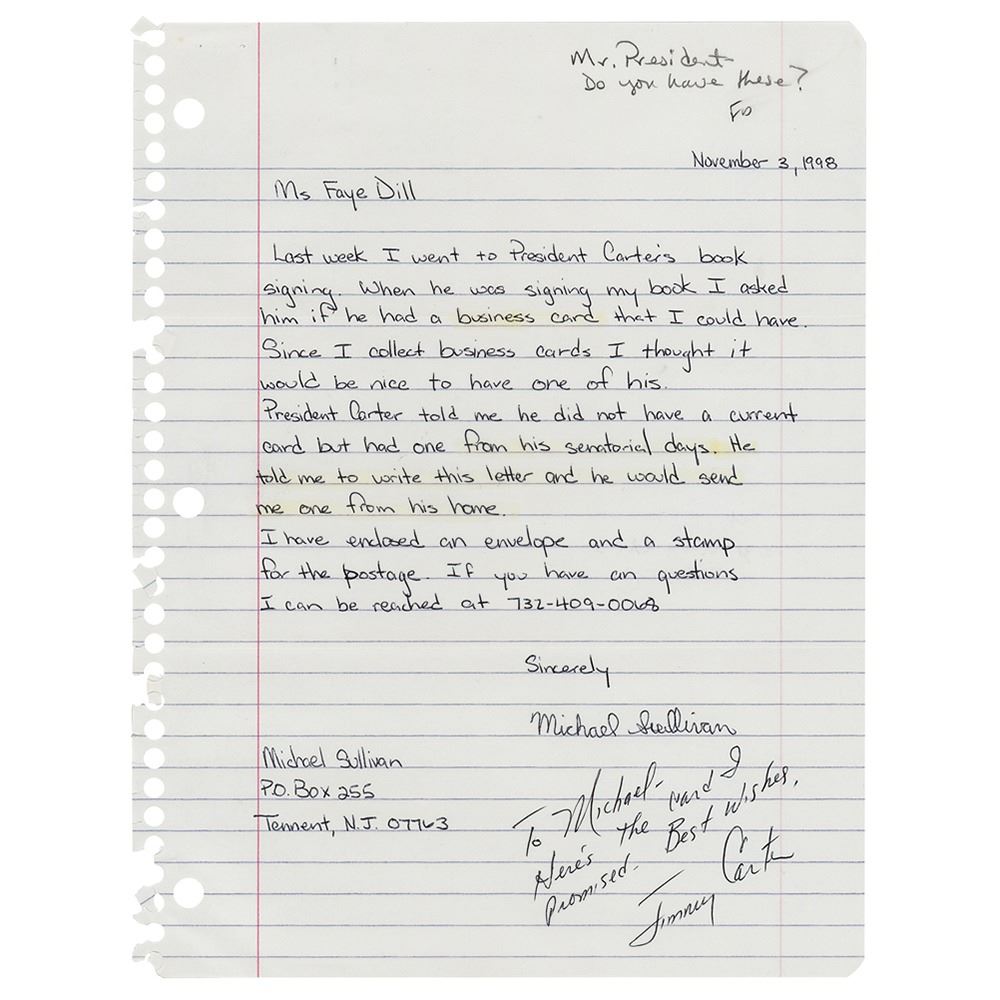 Mr. President
Do you have these?
FD
November 3, 1998
Ms Faye Dill
Last week I went to President Carter's book
signing. When he was signing my book I asked
him if he had a business card that I could have.
Since I collect business cards I thought it
would be nice to have one of his.
President Carter told me he did not have a current
card but had one from his senatorial days. He
told me to write this letter and he would send
me one from his home.
I have enclosed an envelope and a stamp
for the postage. If you have an questions
I can be reached at 732-409-0068
Sincerely
Michael Sullivan
Michael Sullivan
P.O. Box 255
Tennent, N.J. 07763
To Michael-
Here's the card I
Promised. Best wishes,
Jimmy Carter